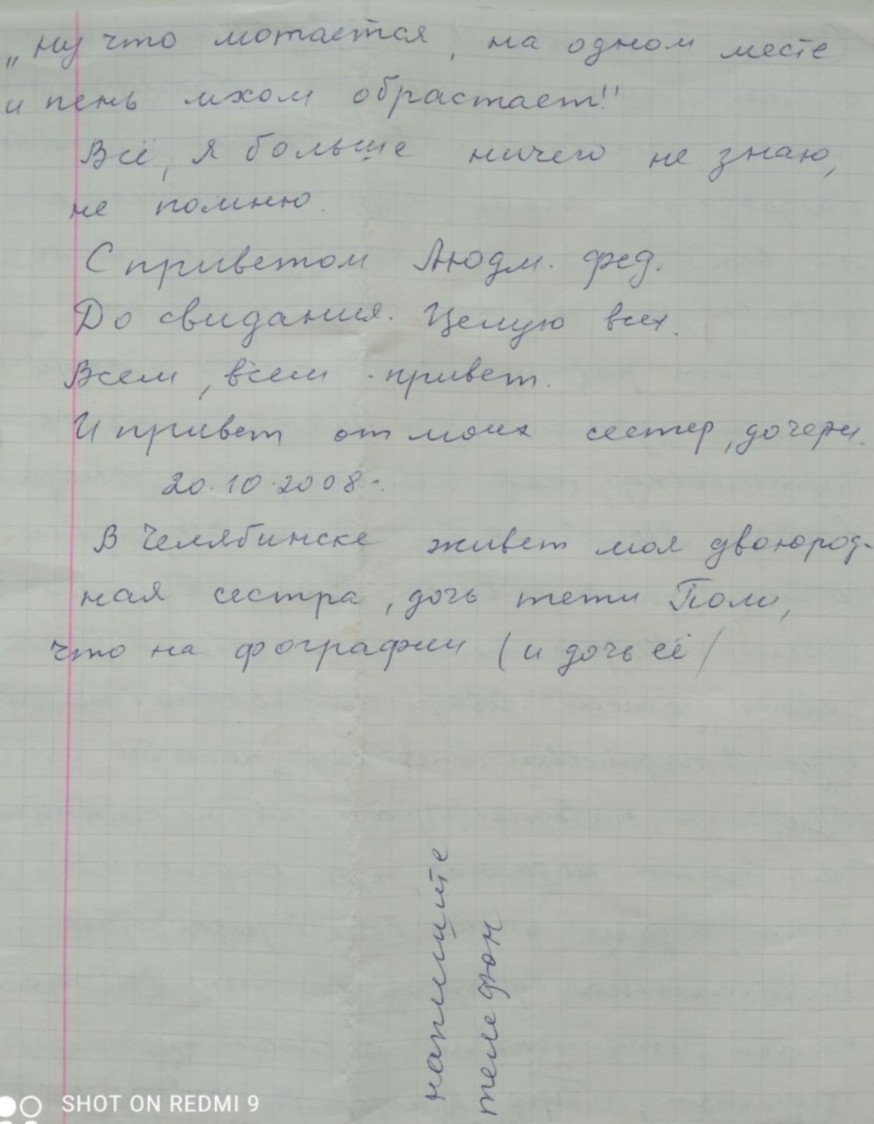 „Ну что мотается, на одном месте
и пень мхом обрастает!"
Всё, я больше ничего не знаю,
не помню.
С приветом Людм. Фед.
До свидания. Целую всех.
Всем, всем - привет.
И привет от моих сестер, дочери.
20.10.2008.
В Челябинске живет моя двоюрод-
ная сестра, дочь тети Поли,
что на фографии (и дочь её)
напишите
телефон
SHOT ON REDMI 9